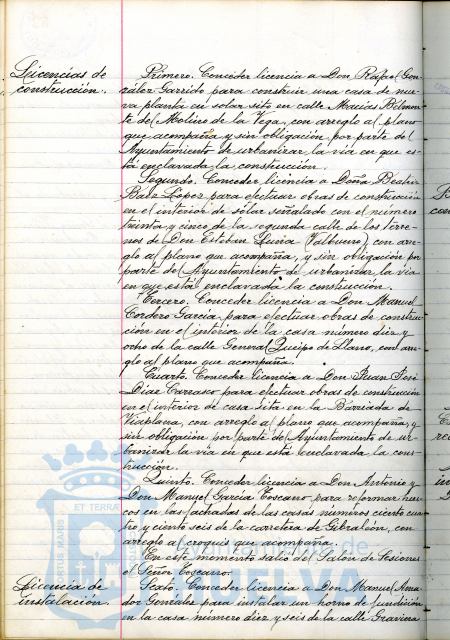 Licencias de
construcción.
Primero. Conceder licencia a Don Rafael Gon-
zález Garrido para construir una casa de nue-
va planta en solar sito en calle Macías Belmon-
te del Molino de la Vega, con arreglo al plano
que acompaña y sin obligación por parte del
Ayuntamiento de urbanizar la vía en que es-
tá enclavada la construcción.
Segundo. Conceder licencia a Doña Beatriz
López para efectuar obras de construcción
en el interior de solar señalado con el número
treinta y cinco de la segunda calle de los terre-
nos de Don Esteban (Valbueno), con arre-
glo al plano que acompaña, y sin obligación por
parte del Ayuntamiento de urbanizar la vía
en que está enclavada la construcción.
Tercero. Conceder licencia a Don Manuel
Cordero García para efectuar obras de construc-
ción en el interior de la casa número diez y
ocho de la calle General Queipo de Llano, con arre-
glo al plano que acompaña.
Cuarto. Conceder licencia a Don Juan José
Díaz Carrasco para efectuar obras de construcción
en el interior de casa sita en la Barriada de
Viaplana, con arreglo al plano que acompaña y
sin obligación por parte del Ayuntamiento de ur-
banizar la vía en que está enclavada la cons-
trucción.
Quinto. Conceder licencia a Don Antonio y
Don Manuel García Toscano para reformar hue-
cos en las fachadas de las casas números ciento cua-
tro y ciento seis de la carretera de Gibraleón, con
arreglo al croquis que acompaña.
En este momento salió del Salón de Sesiones
el Señor Toscano.
Licencia de
instalación.
Sexto. Conceder licencia a Don Manuel Ama-
dor González para instalar un horno de fundición
en la casa número diez y seis de la calle Gravina
ET TERRA
Ayuntamiento de
HUELVA